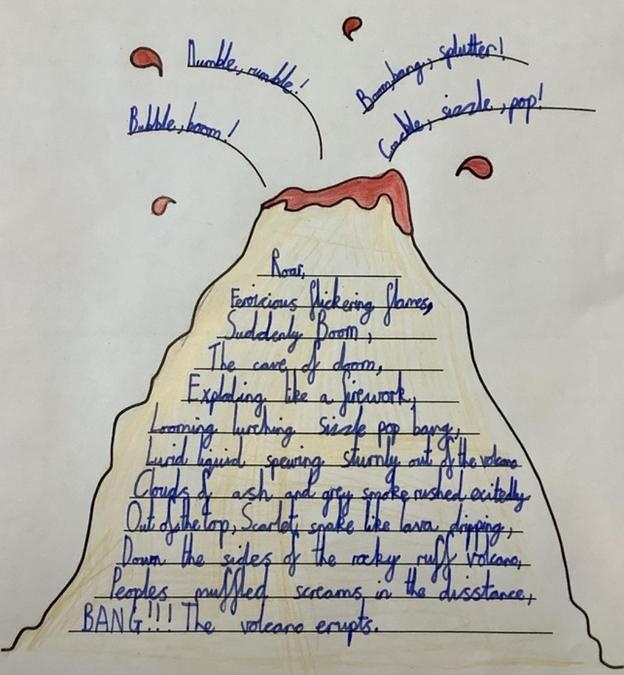 Rumble, rumble!
Boom, bang, splutter!
Bubble, boom!
Crackle, sizzle, pop!
Roar,
Ferocicous flickering flames,
Suddenly Boom,
The cave of doom,
Exploding like a firework,
Looming lurching sizzle pop bang,
Lurid liquid spewing sturnly out of the volcano
Clouds of ash and grey smoke rushed exitedly
Out of the top, Scarlet, snake like lava dripping,
Down the sides of the rocky ruff volcano,
Peoples muffled screams in the disstance,
BANG!!! The volcano erupts.